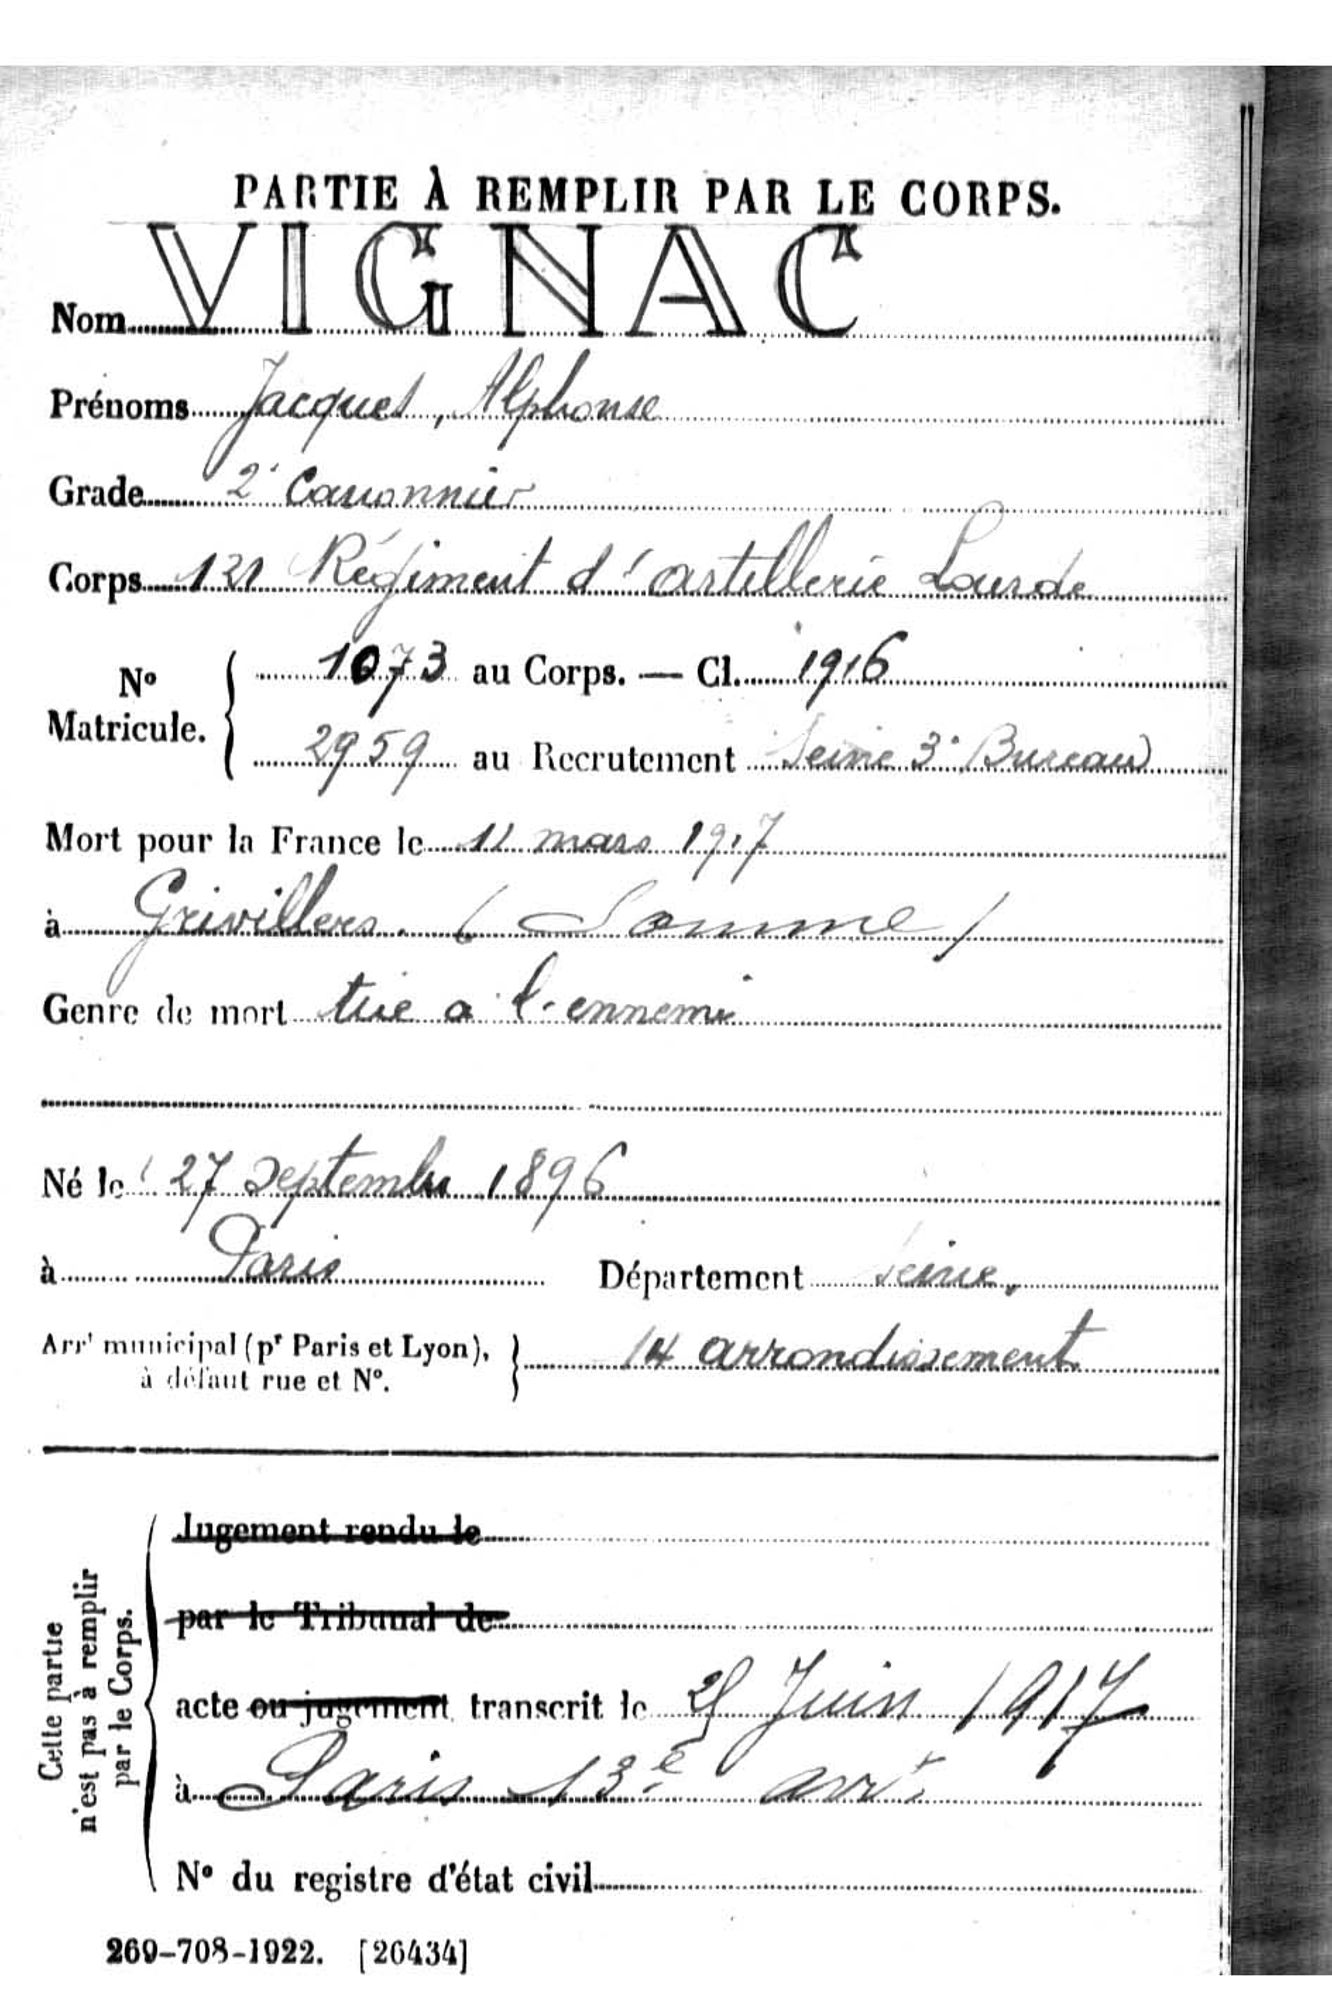 PARTIE À REMPLIR PAR LE CORPS.
Nom VIGNAC
Prénoms Jacques, Alphonse
Grade 2e Canonnier
Corps 121 Régiment d'artillerie Lourde
No Matricule. { 1073 au Corps. — Cl. 1916
2959 au Recrutement Seine 3e Bureau
Mort pour la France le 11 mars 1917
à Grivillers. (Somme)
Genre de mort tué a l'ennemi
Né le 27 Septembre 1896
à Paris Département Seine.
Arrt municipal (pr Paris et Lyon), } 14 arrondissement
à défaut rue et No.
Cette partie n'est pas à remplir par le Corps.
Jugement rendu le
par le Tribunal de
acte ou jugement transcrit le Juin 1917
à Paris 13e arrt
No du registre d'état civil
269-708-1922. [26434]